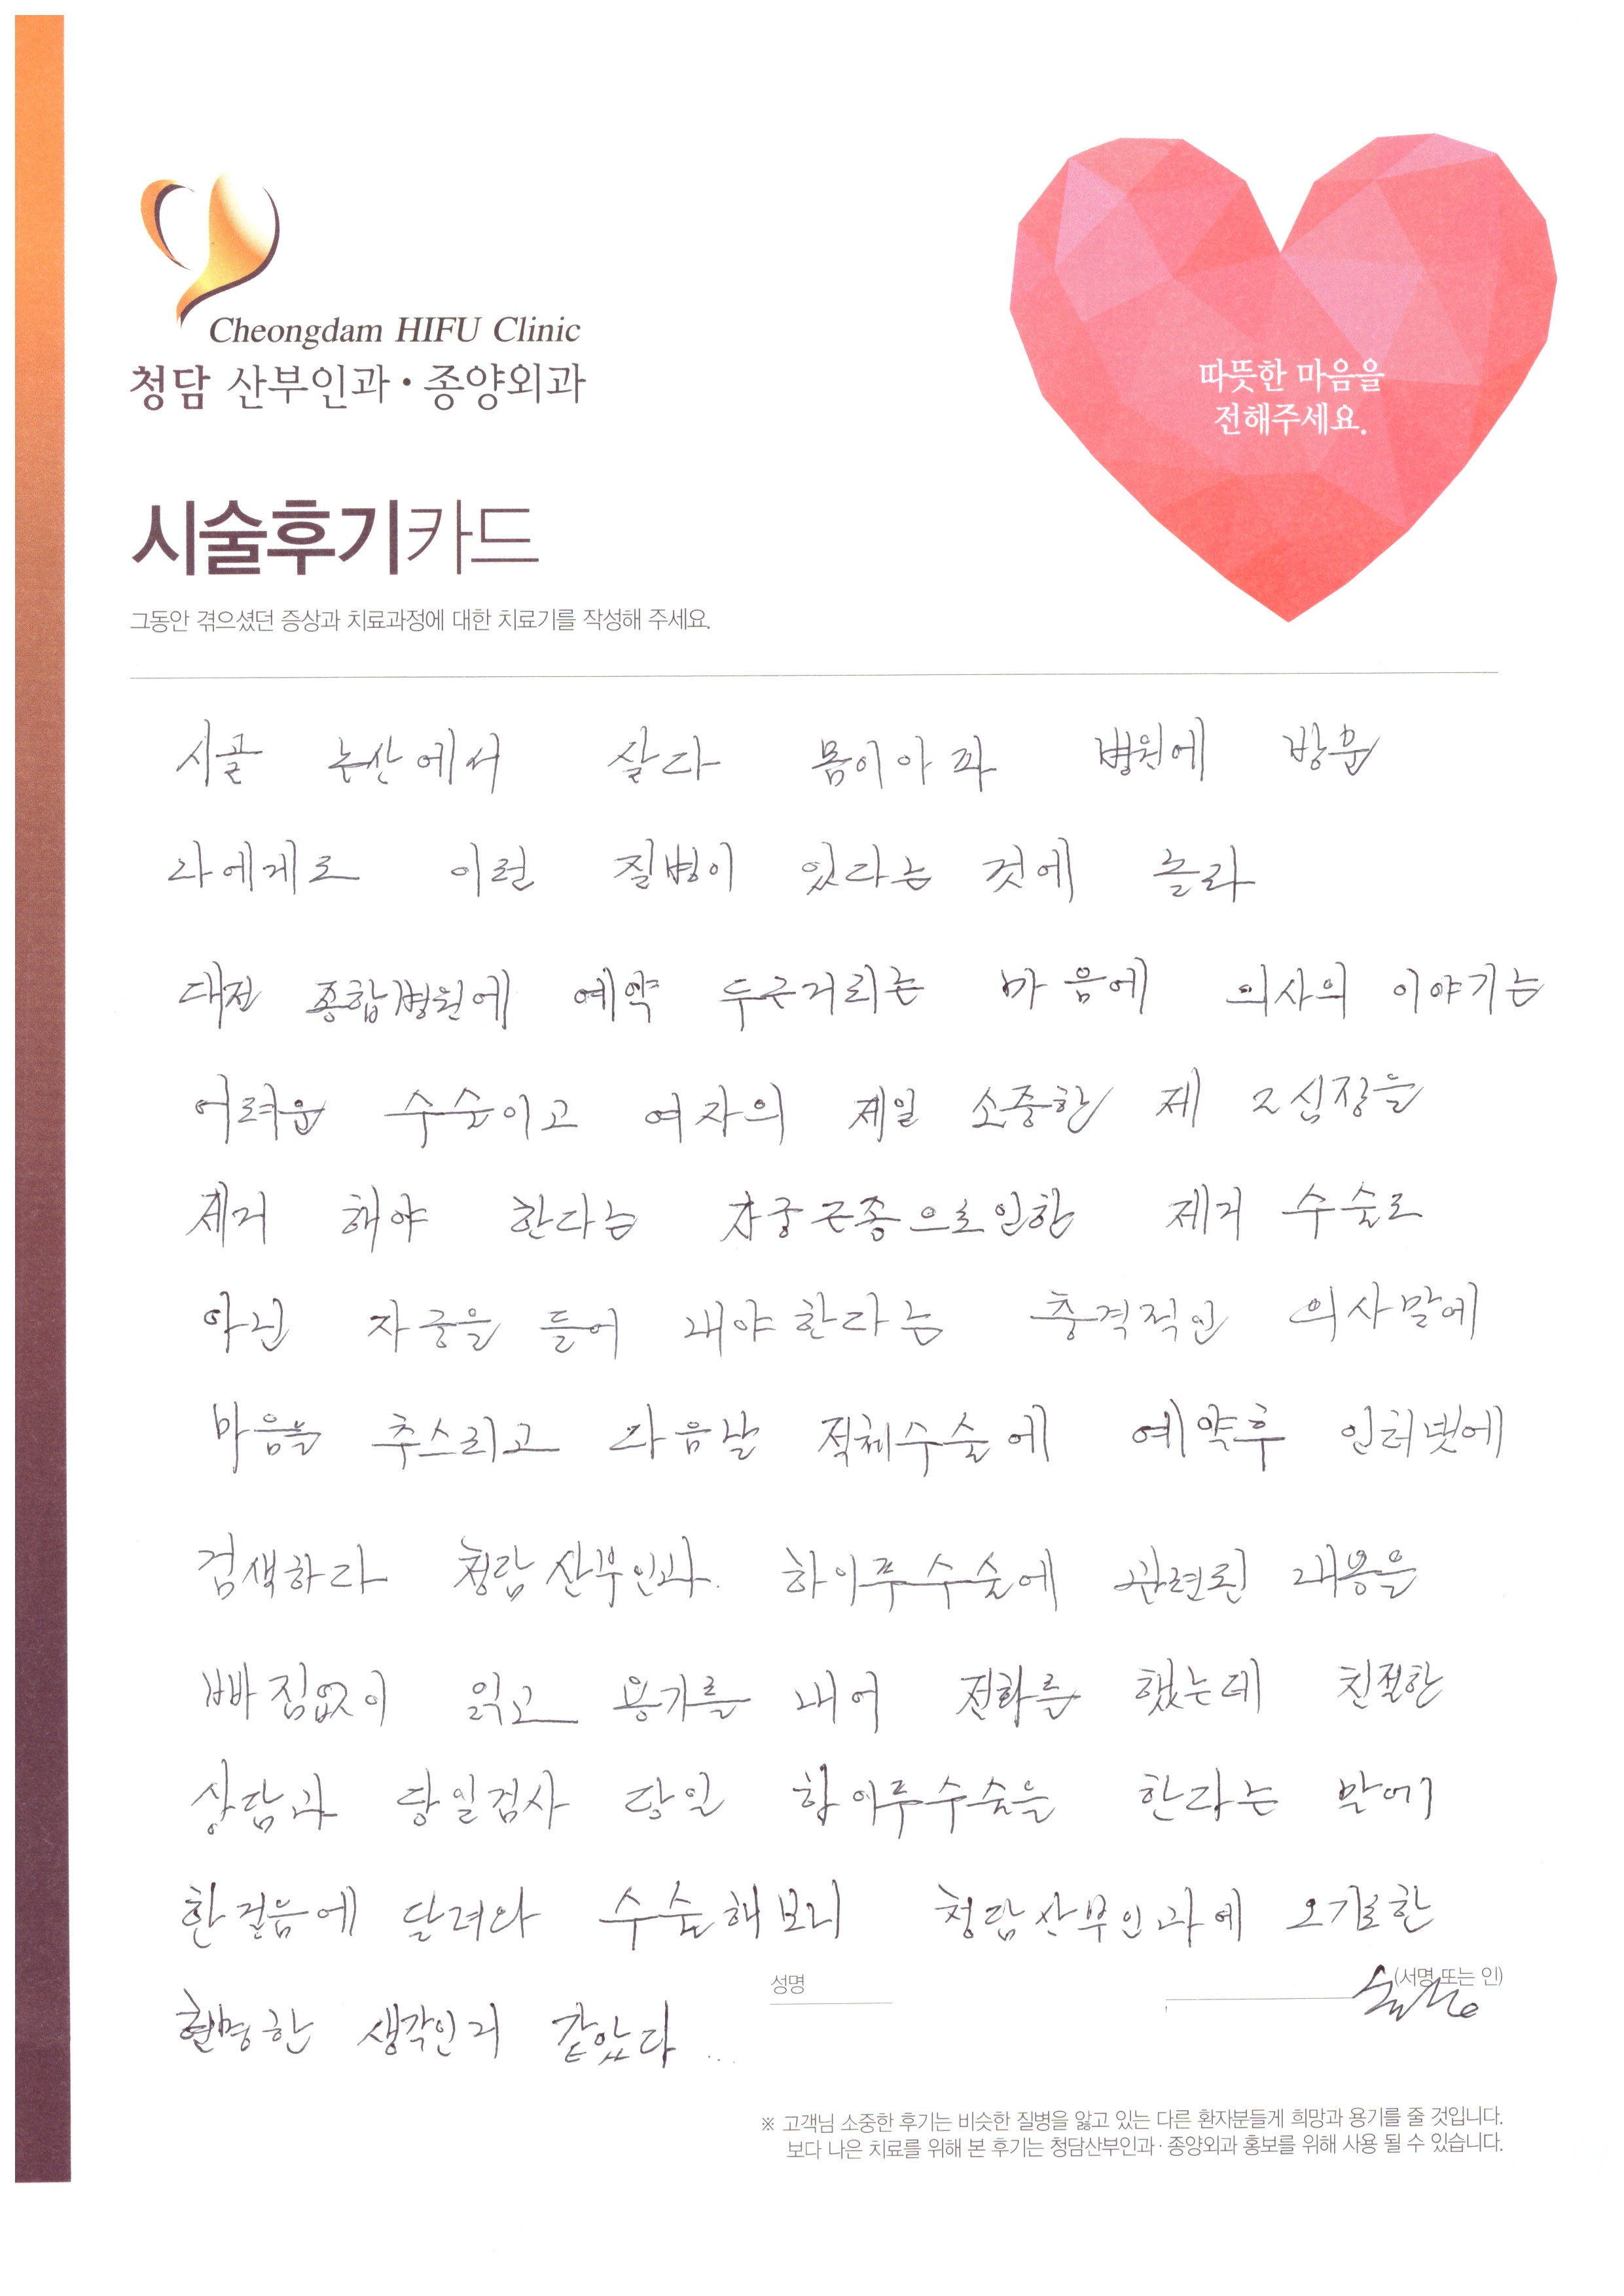 Cheongdam HIFU Clinic
청담 산부인과·종양외과
따뜻한 마음을
전해주세요.
시술후기카드
그동안 겪으셨던 증상과 치료과정에 대한 치료기를 작성해 주세요.
시골 논산에서 살다 몸이아파 병원에 방문
나에게도 이런 질병이 있다는 것에 놀라
대전 종합병원에 예약 두근거리는 마음에 의사의 이야기는
어려운 수술이고 여자의 제일 소중한 제 2심장을
제거 해야 한다는 자궁근종으로인한 제거 수술도
아닌 자궁을 들어 내야한다는 충격적인 의사말에
마음을 추스리고 다음날 적체수술에 예약후 인터넷에
검색하다 청담산부인과. 하이푸수술에 관련된 내용을
빠짐없이 읽고 용기를 내어 전화를 했는데 친절한
상담과 당일검사 당일 하이푸수술을 한다는 말에
한걸음에 달려와 수술해보니 청담산부인과에 오기로한
현명한 생각인거 같았다...
성명
(서명 또는 인)
※ 고객님 소중한 후기는 비슷한 질병을 앓고 있는 다른 환자분들게 희망과 용기를 줄 것입니다.
보다 나은 치료를 위해 본 후기는 청담산부인과·종양외과 홍보를 위해 사용 될 수 있습니다.